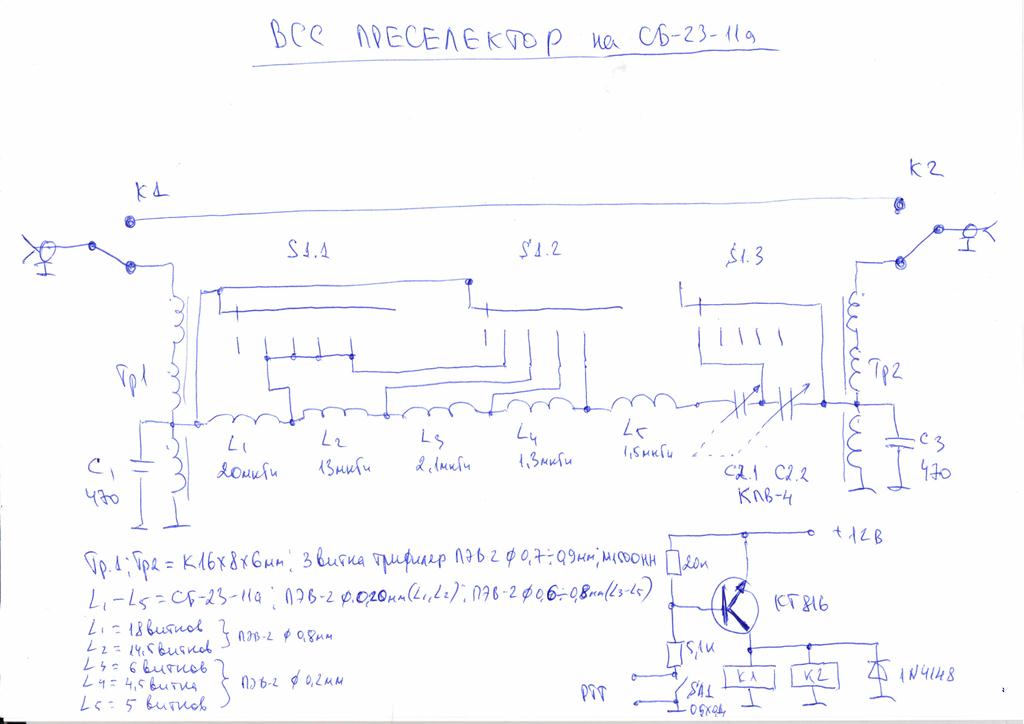 ВСС ПРЕСЕЛЕКТОР на СБ-23-11а
К1
К2
S1.1
S1.2
S1.3
Тр1
Тр2
L1
20мкГн
L2
13мкГн
L3
2,1мкГн
L4
1,3мкГн
L5
1,5мкГн
C1
470
C2.1 C2.2
КПВ-4
C3
470
Тр.1; Тр2 = К16х8х6мм; 3 витка трифиляр ПЭВ-2 ф 0,7÷0,9мм; М1000НН
L1-L5 = СБ-23-11а; ПЭВ-2 ф 0,20мм (L1, L2); ПЭВ-2 ф 0,6÷0,8мм (L3-L5)
L1 = 18 витков
L2 = 14,5 витков
ПЭВ-2 ф 0,8мм
L3 = 6 витков
L4 = 4,5 витка
L5 = 5 витков
ПЭВ-2 ф 0,2мм
+12В
20к
КТ816
5,1к
РТТ
SA1
К1
К2
1N4148